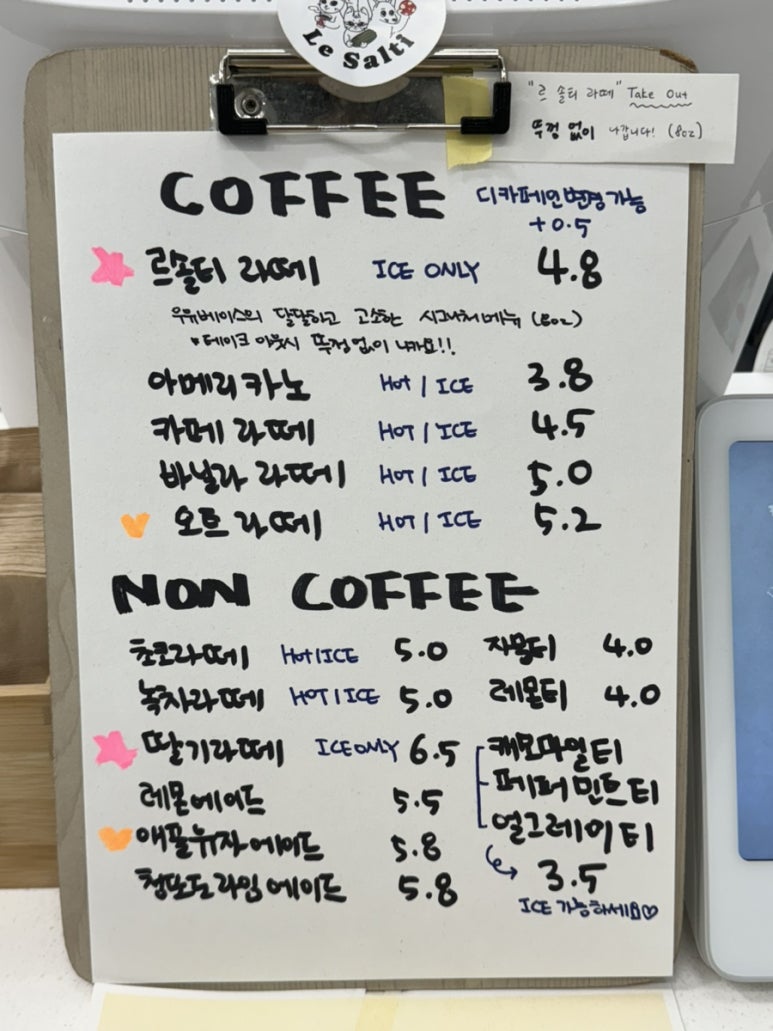 Le Salti
"르 솔티 라떼" Take Out
뚜껑 없이 나갑니다! (8oz)
COFFEE
디카페인변경가능
+0.5
르솔티 라떼 ICE ONLY 4.8
우유베이스의 달달하고 고소한 시그니처메뉴 (8oz)
♥테이크 아웃시 뚜껑없이 나가요!!
아메리카노 Hot / ICE 3.8
카페 라떼 HOT / ICE 4.5
바닐라 라떼 HOT / ICE 5.0
오트 라떼 HOT / ICE 5.2
NON COFFEE
초코라떼 HOT/ICE 5.0
녹차라떼 HOT/ICE 5.0
딸기라떼 ICE ONLY 6.5
레몬에이드 5.5
애플유자에이드 5.8
청포도라임에이드 5.8
자몽티 4.0
레몬티 4.0
캐모마일티
페퍼민트티
얼그레이티
3.5
ICE 가능하세요♡